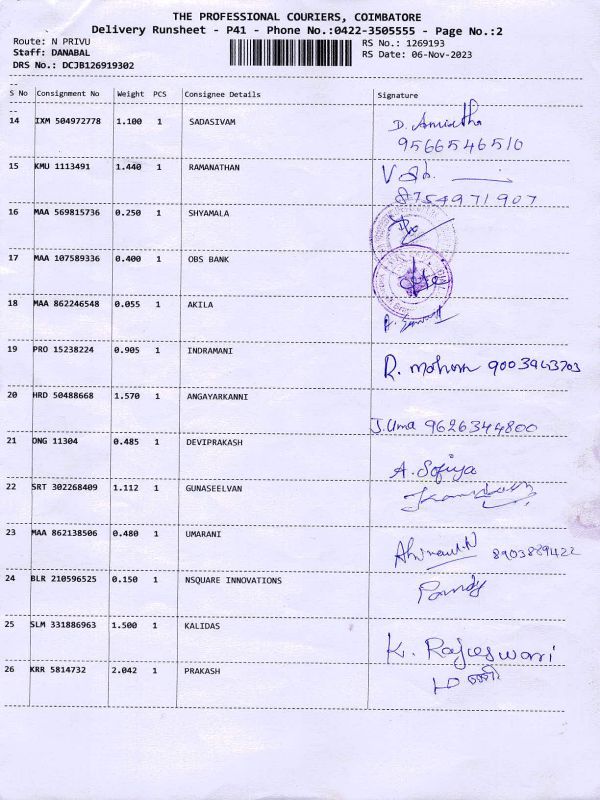 THE PROFESSIONAL COURIERS, COIMBATORE
Delivery Runsheet - P41 - Phone No.:0422-3505555 - Page No.:2
Route: N PRIVU RS No.: 1269193
Staff: DANABAL RS Date: 06-Nov-2023
DRS No.: DCJB126919302
S No Consignment No Weight PCS Consignee Details Signature
14 IXM 504972778 1.100 1 SADASIVAM D. Amirtha
9566546510
15 KMU 1113491 1.440 1 RAMANATHAN
8754971907
16 MAA 569815736 0.250 1 SHYAMALA
17 MAA 107589336 0.400 1 OBS BANK
18 MAA 862246548 0.055 1 AKILA
19 PRO 15238224 0.905 1 INDRAMANI R. mohan 9003943703
20 HRD 50488668 1.570 1 ANGAYARKANNI
J. Uma 9626344800
21 ONG 11304 0.485 1 DEVIPRAKASH
A. Sofiya
22 SRT 302268409 1.112 1 GUNASEELVAN
23 MAA 862138506 0.480 1 UMARANI
8903889422
24 BLR 210596525 0.150 1 NSQUARE INNOVATIONS Pandy
25 SLM 331886963 1.500 1 KALIDAS
K. Rajeswari
26 KRR 5814732 2.042 1 PRAKASH